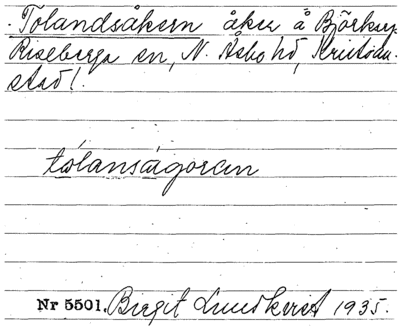 Tolandsåkern åker å Björkup
Riseberga sn, N. Åsbo hd, Kristian-
stad l.
tólanságoran
Nr 5501. Birgit Lundkvist 1935.